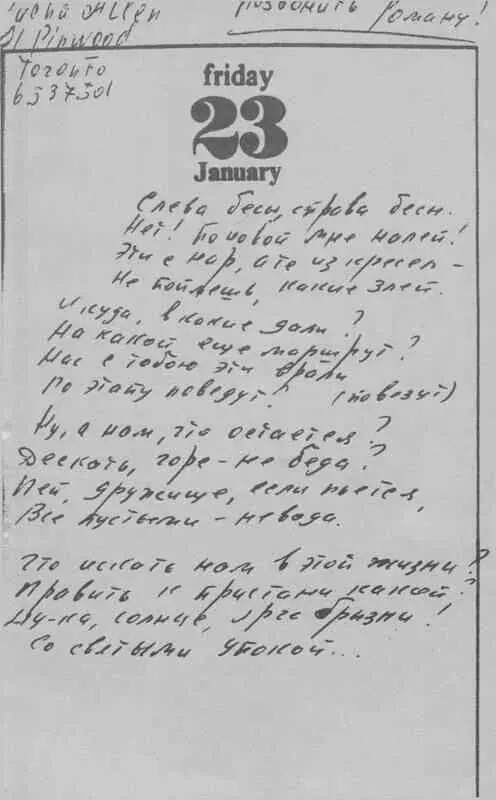 Allen Позвонить Роману!
Pinwood
Toronto
friday
23
January
Слева бесы, справа бесы.
Нет! По новой мне налей!
Эти с нар, а те из кресел –
Не поймешь, какие злей.
И куда, в какие дали?
На какой еще маршрут?
Нас с тобою эти врали
По этапу поведут? (повезут)
Ну, а нам, что остается?
Дескать, горе – не беда?
Пей, дружище, если пьется,
Все пустыми – невода.
Что искать нам в этой жизни?
Править к пристани какой?
Ну-ка, солнце, ярче брызни!
Со святыми упокой...